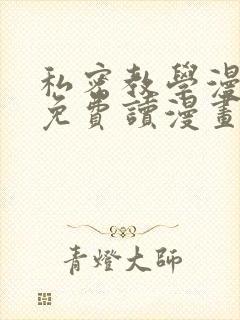 私密教學漫
免費讀漫畫
青燈大師